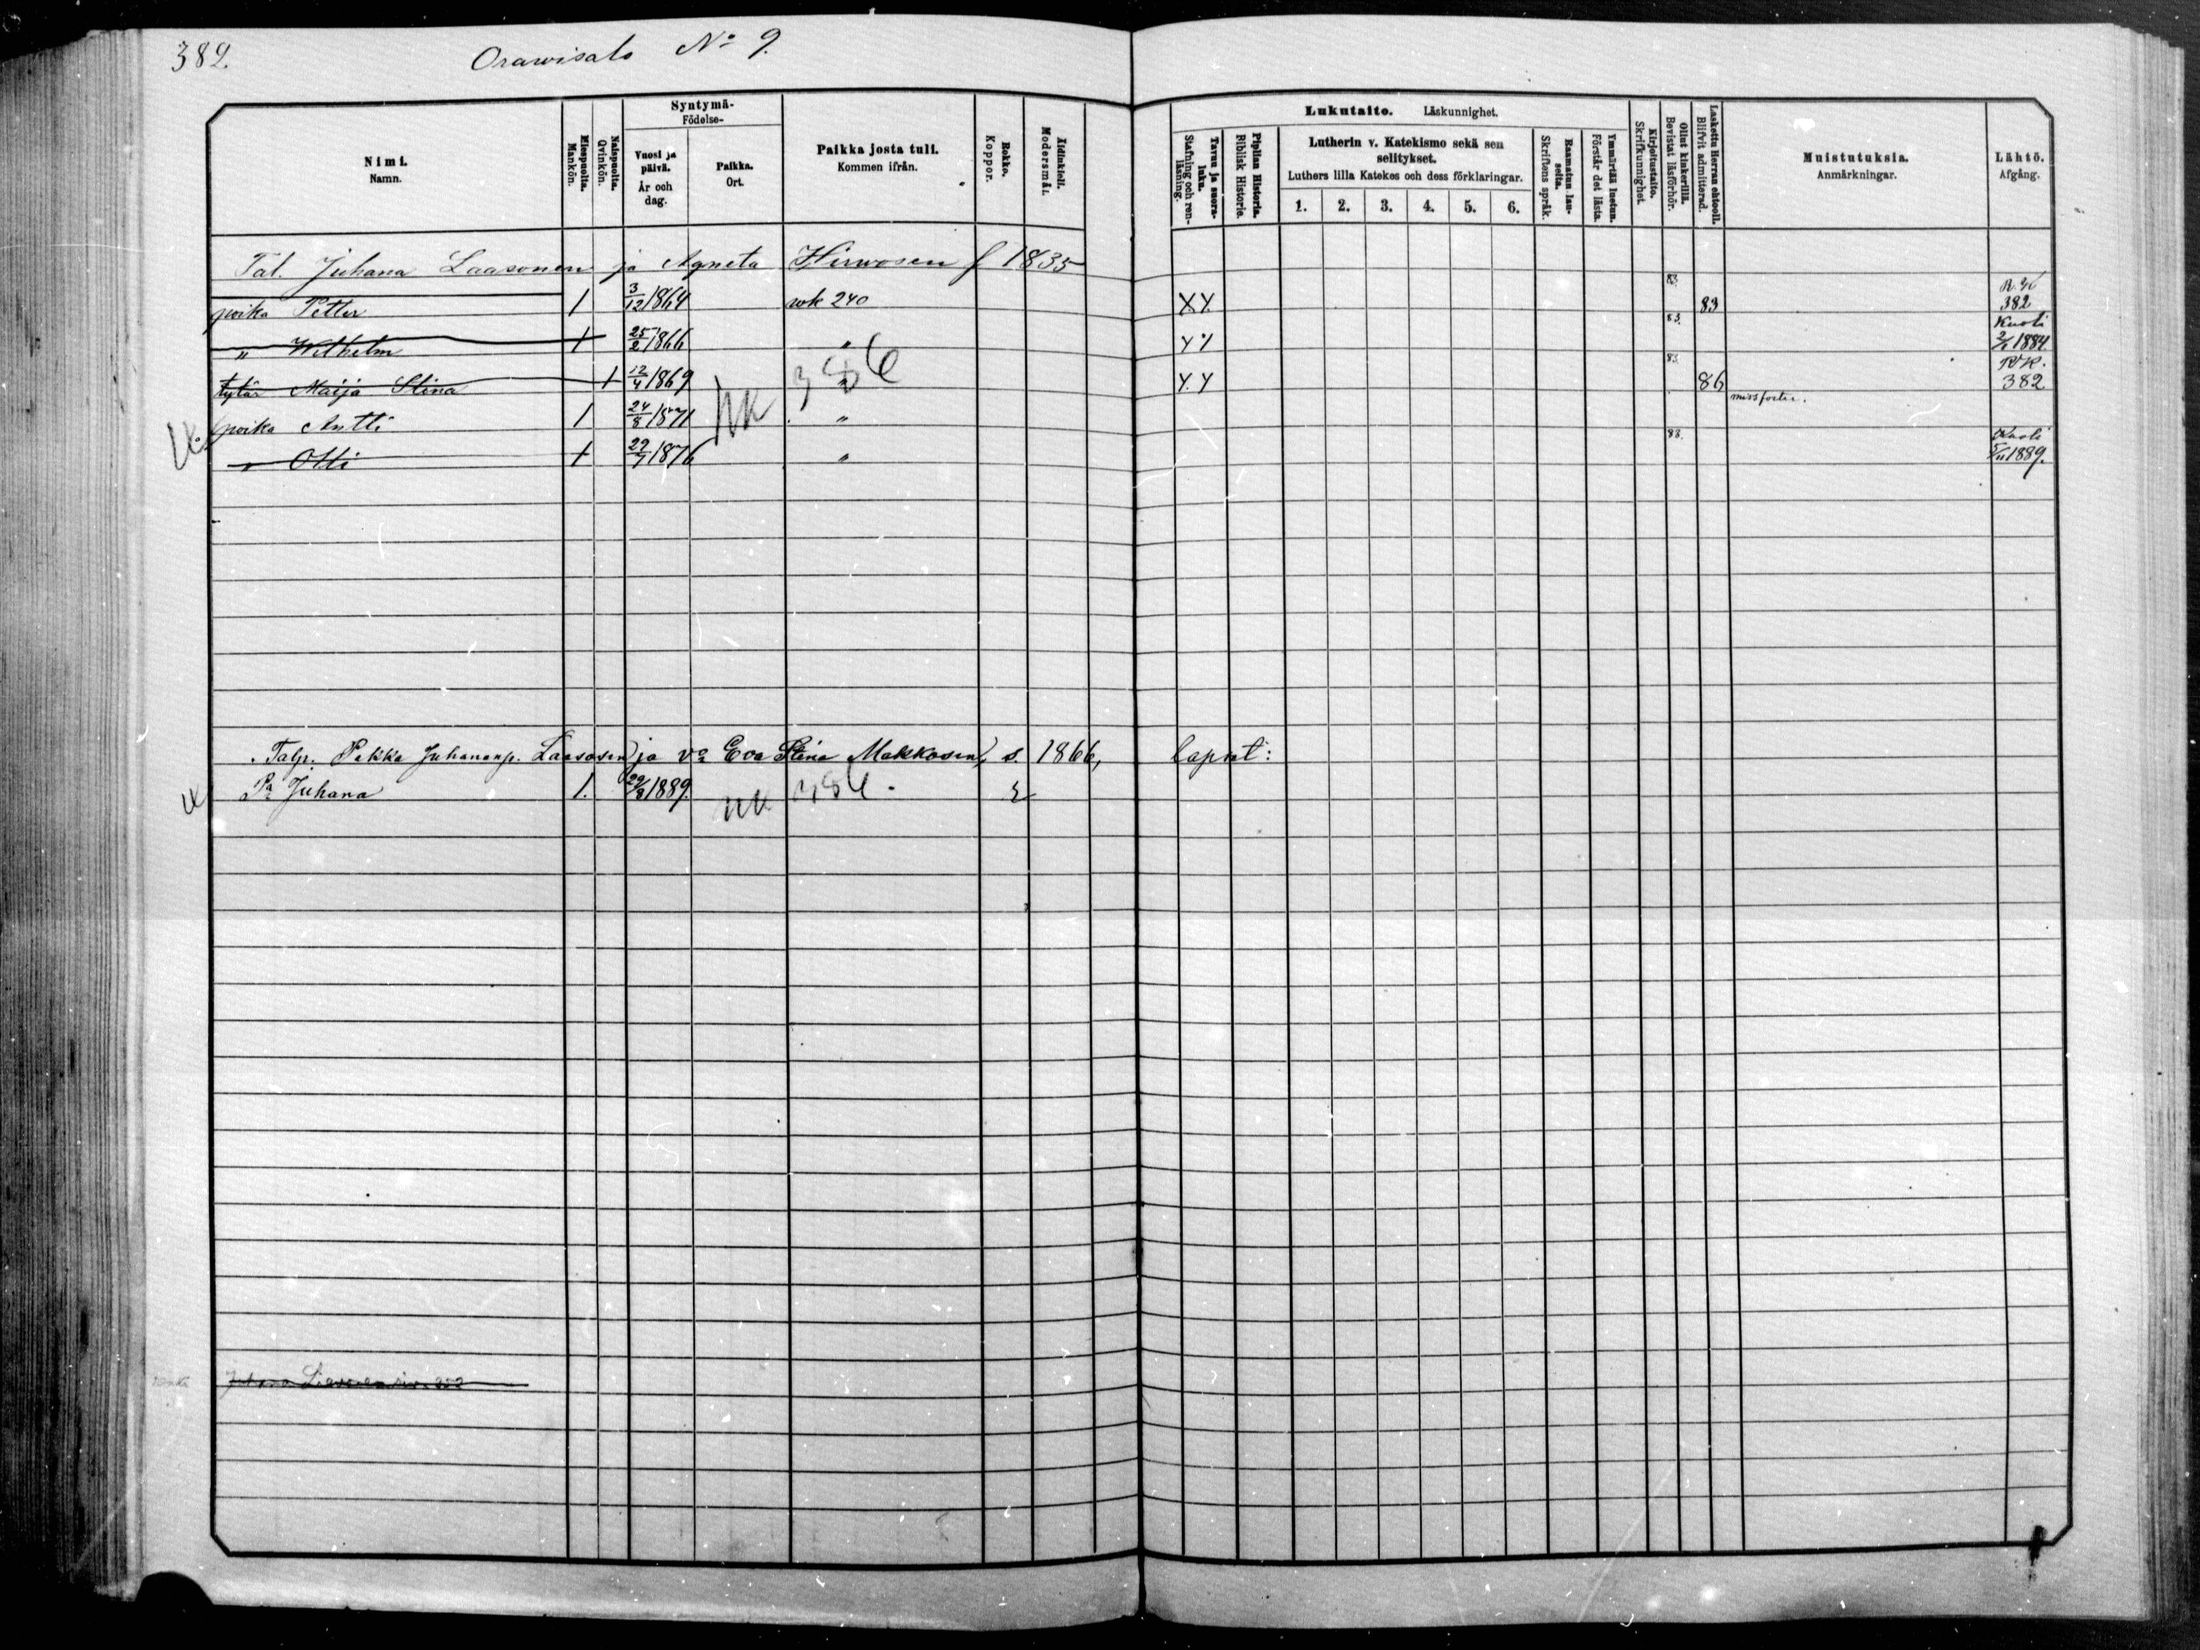 382.
Orawisalo No 9.
Nimi. Namn.
Miespuolta. Mankön.
Naispuolta. Qvinkön.
Syntymä- Födelse-
Vuosi ja päivä. År och dag.
Paikka. Ort.
Paikka josta tuli. Kommen ifrån.
Rokko. Koppor.
Äidinkieli. Modersmål.
Lukutaito. Läskunnighet.
Tavuu ja suoraluku. Stafning och renläsning.
Piplian Historia. Biblisk Historie.
Lutherin v. Katekismo sekä sen selitykset.
Luthers lilla Katekes och dess förklaringar.
1. 2. 3. 4. 5. 6.
Raamatun lauseita. Skriftens språk.
Ymmärtää luetun. Förstår det lästa.
Kirjoitustaito. Skrifkunnighet.
Ollut kinkerillä. Bevistat läsförhör.
Laskettu Herran ehtooll. Blifvit admitterad.
Muistutuksia. Anmärkningar.
Lähtö. Afgång.
Tal. Juhana Laasonen ja Agneta Hirwosen f 1835
poika Petter 1 3/12 1864 wk 240 XY. 83 83 R.K 382
" Wilhelm 1 25/2 1866 " 83. Kuoli 1884
tytär Maija Stina 1 12/4 1869 " Y. Y 83 86 RK. 382
poika Antti 1 24/8 1871 "
" Otti 1 29/7 1876 " 88. Kuoli 5/11 1889.
RK 386
Talp. Pekka Juhananp. Laasosen ja vo Eva Stina Makkosen, s. 1866, lapset:
Pa Juhana 1. 29/8 1889. r